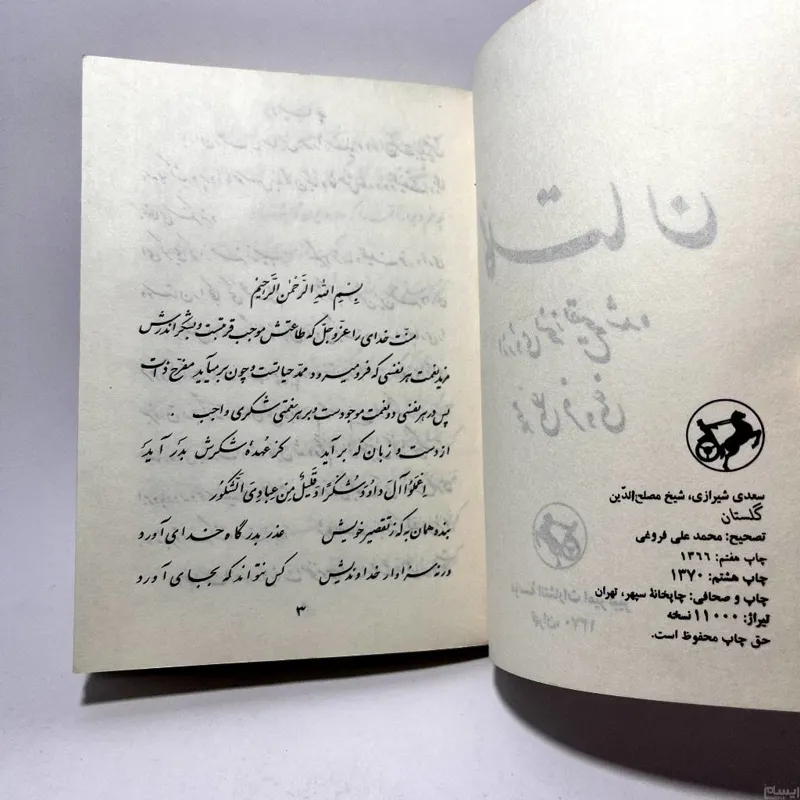 سعدی شیرازی، شیخ مصلح‌الدّین
گلستان
تصحیح: محمد علی فروغی
چاپ هفتم: ۱۳۶۶
چاپ هشتم: ۱۳۷۰
چاپ و صحافی: چاپخانهٔ سپهر، تهران
تیراژ: ۱۱۰۰۰ نسخه
حق چاپ محفوظ است.
بِسْمِ اللّٰهِ الرَّحْمٰنِ الرَّحیْمِ
منّت خدای را عزّ و جلّ که طاعتش موجب قربتست و بشکر اندرش
مزید نعمت هر نفسی که فرو میرود ممدّ حیاتست و چون بر میآید مفرّح ذات
پس در هر نفسی دو نعمت موجودست و بر هر نعمتی شکری واجب .
از دست و زبان که برآید کز عهدهٔ شکرش بدر آید
اِعْمَلُوا آلَ داوُدَ شُکْراً وَ قَلیٖلٌ مِنْ عِبادِیَ الْشَّکُورُ
بنده همان به که ز تقصیر خویش عذر بدرگاه خدای آورد
ورنه سزاوار خداوندیش کس نتواند که بجای آورد
۳
ایسام